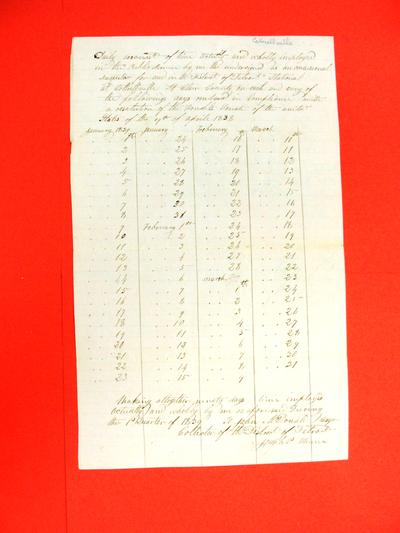 Daily account of time actually and wholly employed
in the Public Service by me the undersigned as an occasional
inspector for and in the District of Detroit Stationed
at St Clair County on each and every of
the following days rendered in compliance with
a resolution of the Honorable Senate of the United
States of the 9th of April 1838
January 1839 January February March
1 24 16 11th
2 25 17 11
3 26 18 12
4 27 19 13
5 28 20 14
6 29 21 15
7 30 22 16
8 31 23 17
9 February 1st 24 18
10 2 25 19
11 3 26 20
12 4 27 21
13 5 28 22
14 6 March 23
15 7 1st 24
16 8 2 25
17 9 3 26
18 10 4 27
19 11 5 28
20 12 6 29
21 13 7 30
22 14 8 31
23 15 9
Making altogether ninety days time employed
actually and wholly by me as aforesaid during
the 1st Quarter of 1839 To John McDonell Esqr
Collector of the District of Detroit